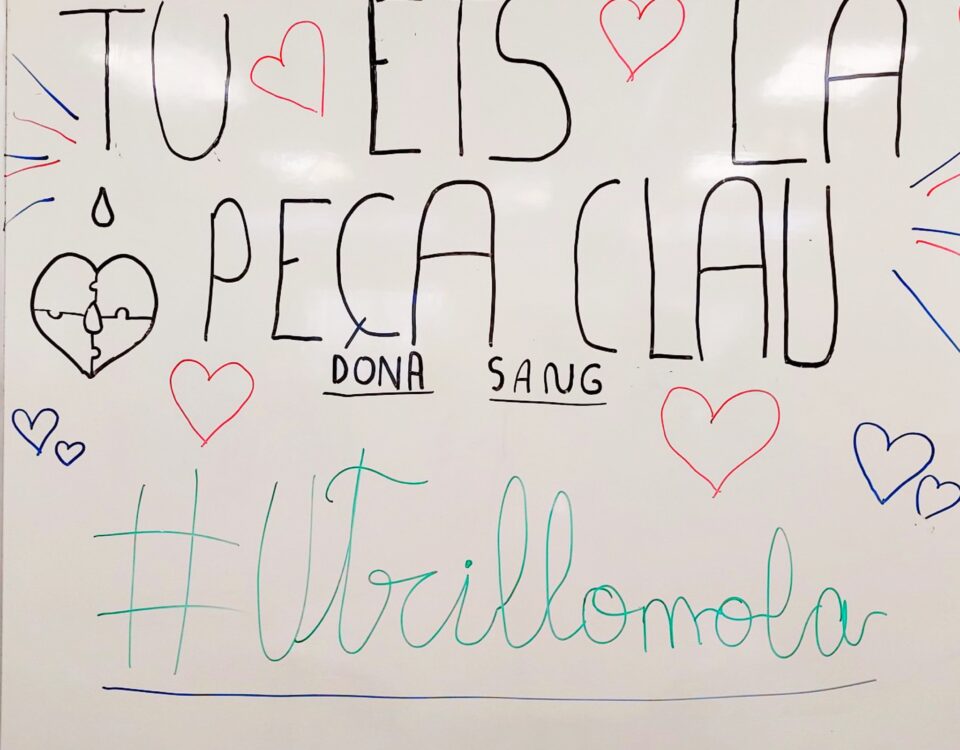 TU EIS LA
PEÇA CLAU
DONA SANG
#Utrillomola